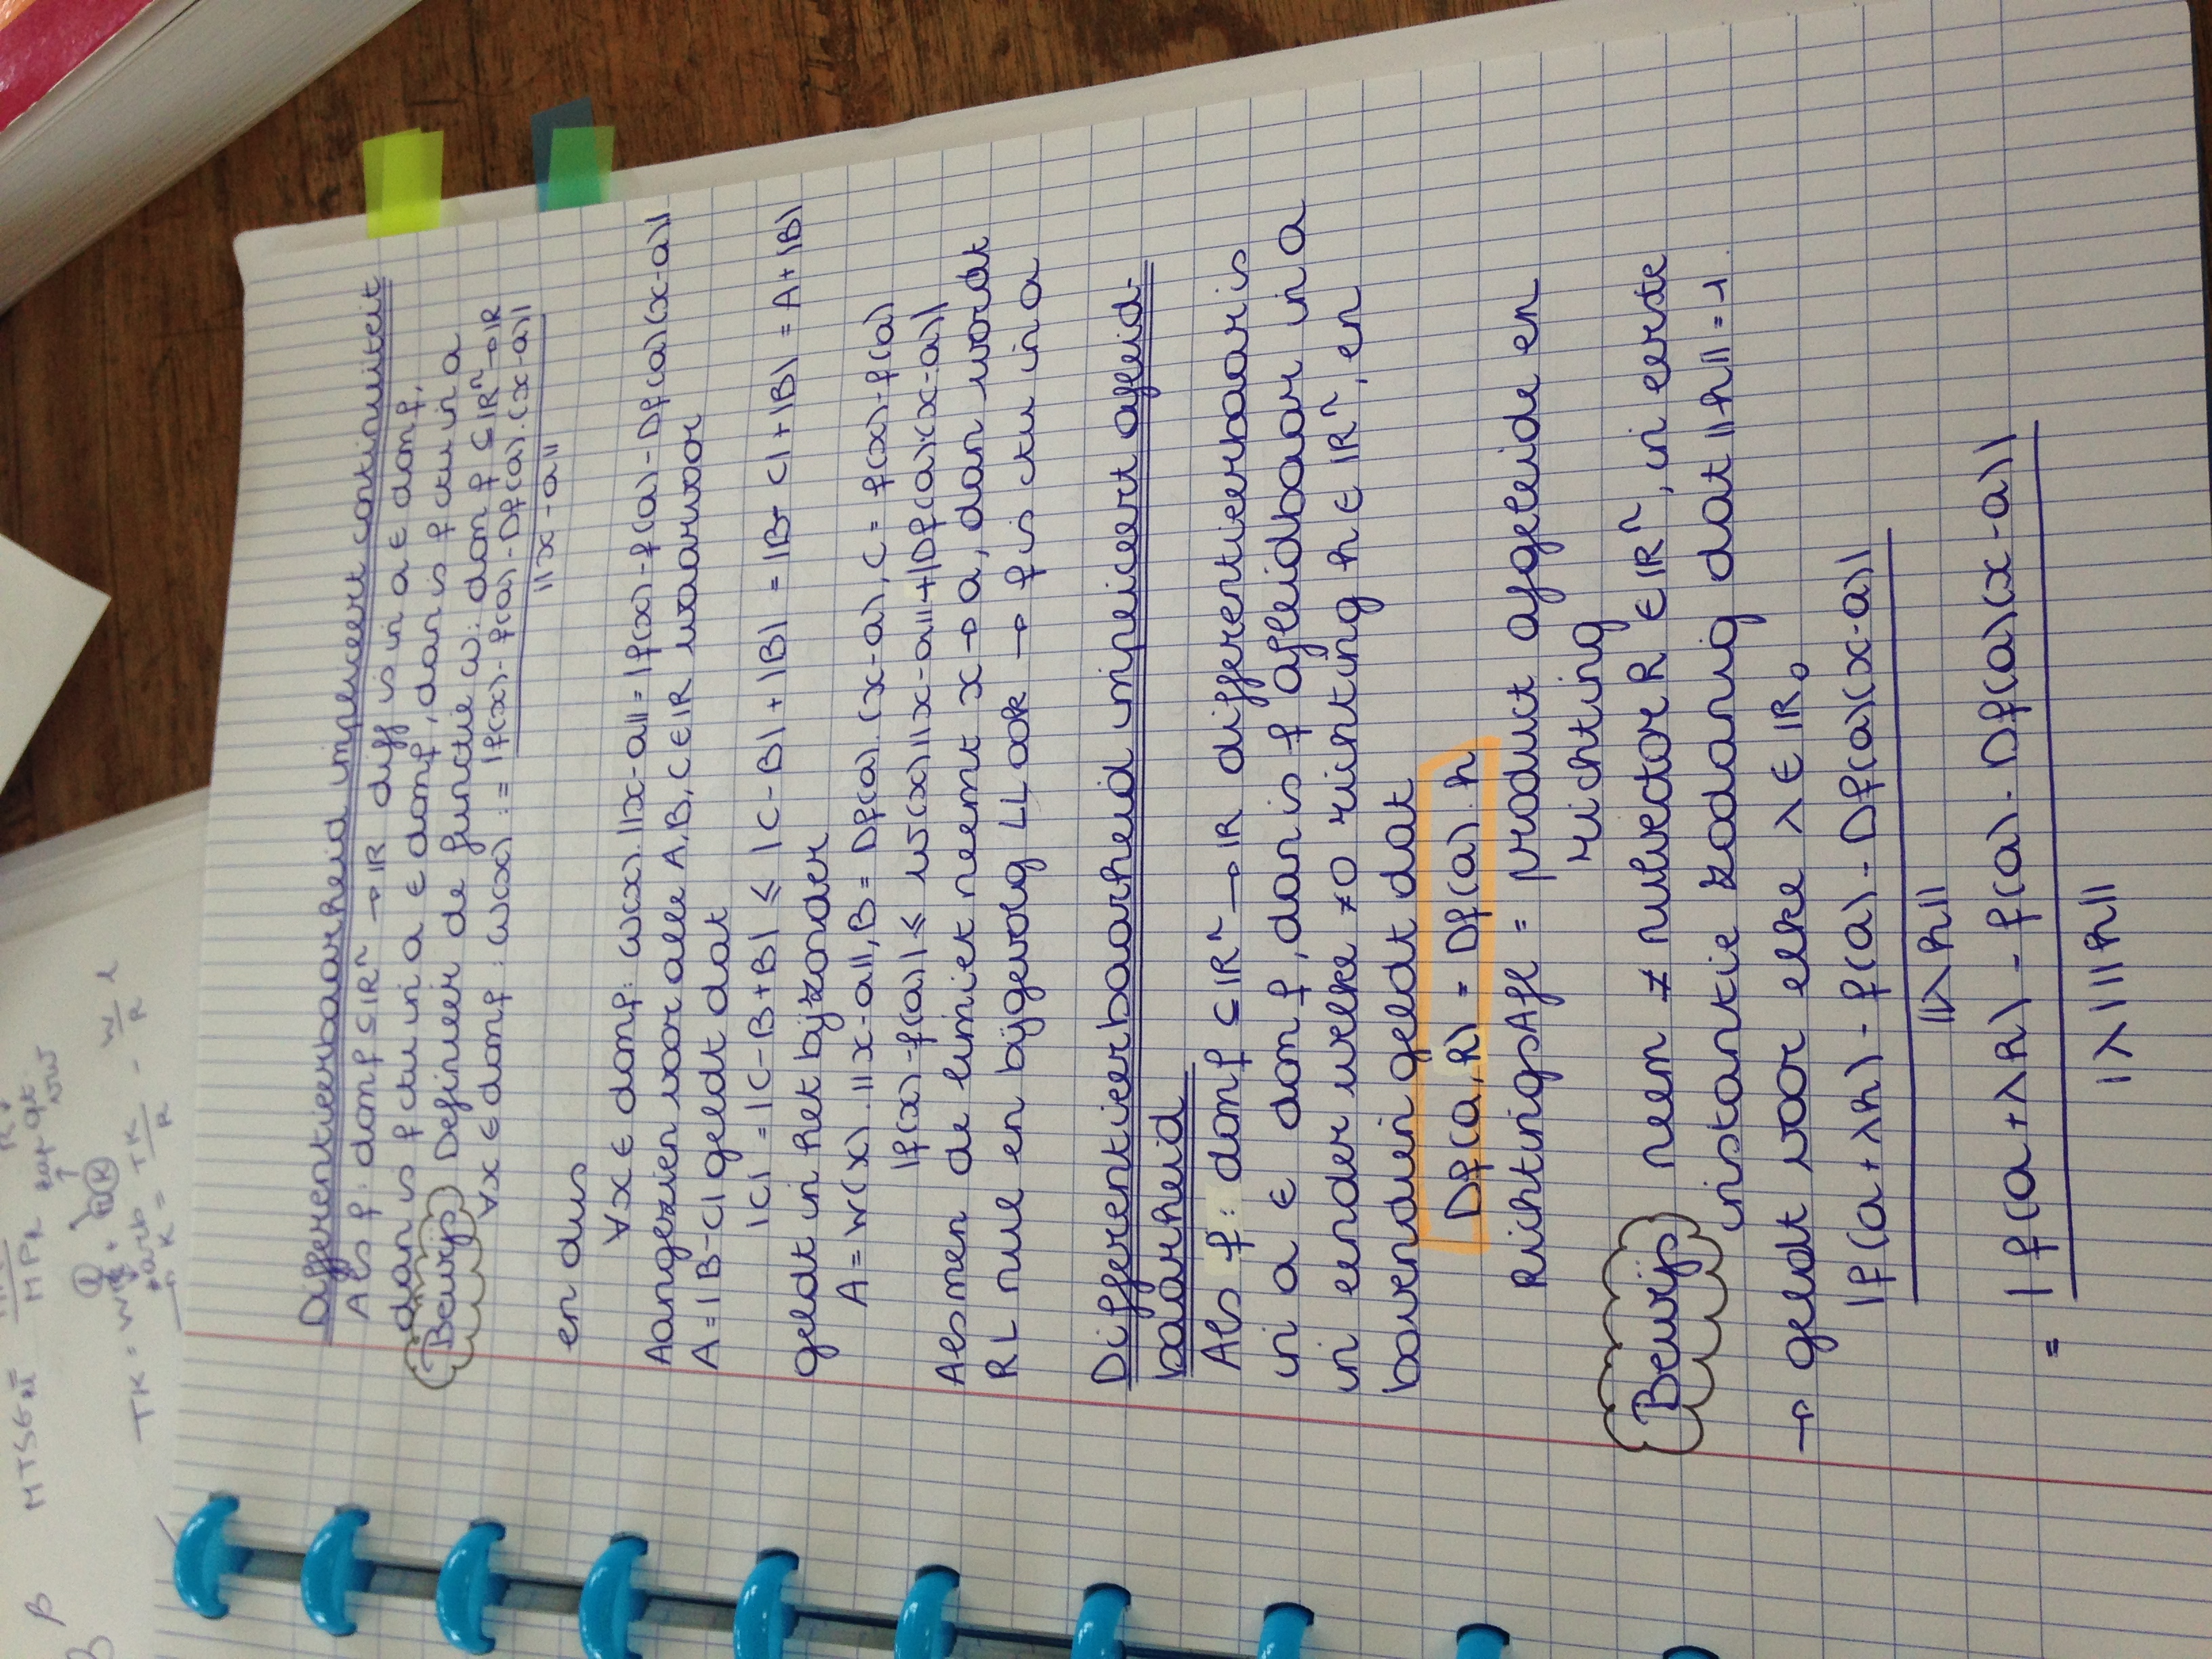 Differentieerbaarheid impliceert continuïteit
Als f: dom f ⊆ IR^n → IR diff is in a ∈ dom f,
dan is f ctu in a ∈ dom f, dan is f ctu in a
Bewijs Definieer de functie w: dom f ⊆ IR^n → IR
∀x ∈ dom f: w(x) := |f(x) - f(a) - Df(a).(x-a)|
||x-a||
en dus
∀x ∈ dom f: w(x).||x-a|| = |f(x) - f(a) - Df(a)(x-a)|
Aangezien voor alle A, B, C ∈ IR waarvoor
A = |B-C| geldt dat
|C| = |C-B+B| ≤ |C-B| + |B| = |B-C| + |B| = A + |B|
geldt in het bijzonder
A = w(x).||x-a||, B = Df(a).(x-a), C = f(x)-f(a)
|f(x)-f(a)| ≤ w(x)||x-a|| + |Df(a)(x-a)|
Als men de limiet neemt x → a, dan wordt
RL nul en bijgevolg LL ook → f is ctu in a
Differentieerbaarheid impliceert afleid-
baarheid
Als f: dom f ⊆ IR^n → IR differentieerbaar is
in a ∈ dom f, dan is f afleidbaar in a
in eender welke ≠0 richting h ∈ IR^n, en
bovendien geldt dat
Df(a,h) = Df(a).h
RichtingsAfl = product afgeleide en
richting
Bewijs neem ≠ nulvector h ∈ IR^n, in eerste
instantie zodanig dat ||h|| = 1.
→ geldt voor elke λ ∈ IR_0
|f(a+λh) - f(a) - Df(a)(x-a)|
||λh||
= |f(a+λh) - f(a) - Df(a)(x-a)|
|λ|||h||
MTSG
MPk
TK =
TK
R
- W
R
β